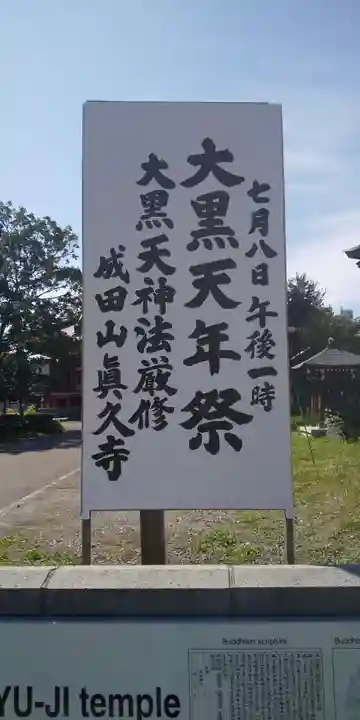 七月八日午後一時
大黒天年祭
大黒天神法厳修
成田山眞久寺
YU-JI temple
Buddhism scripture
Buddhi